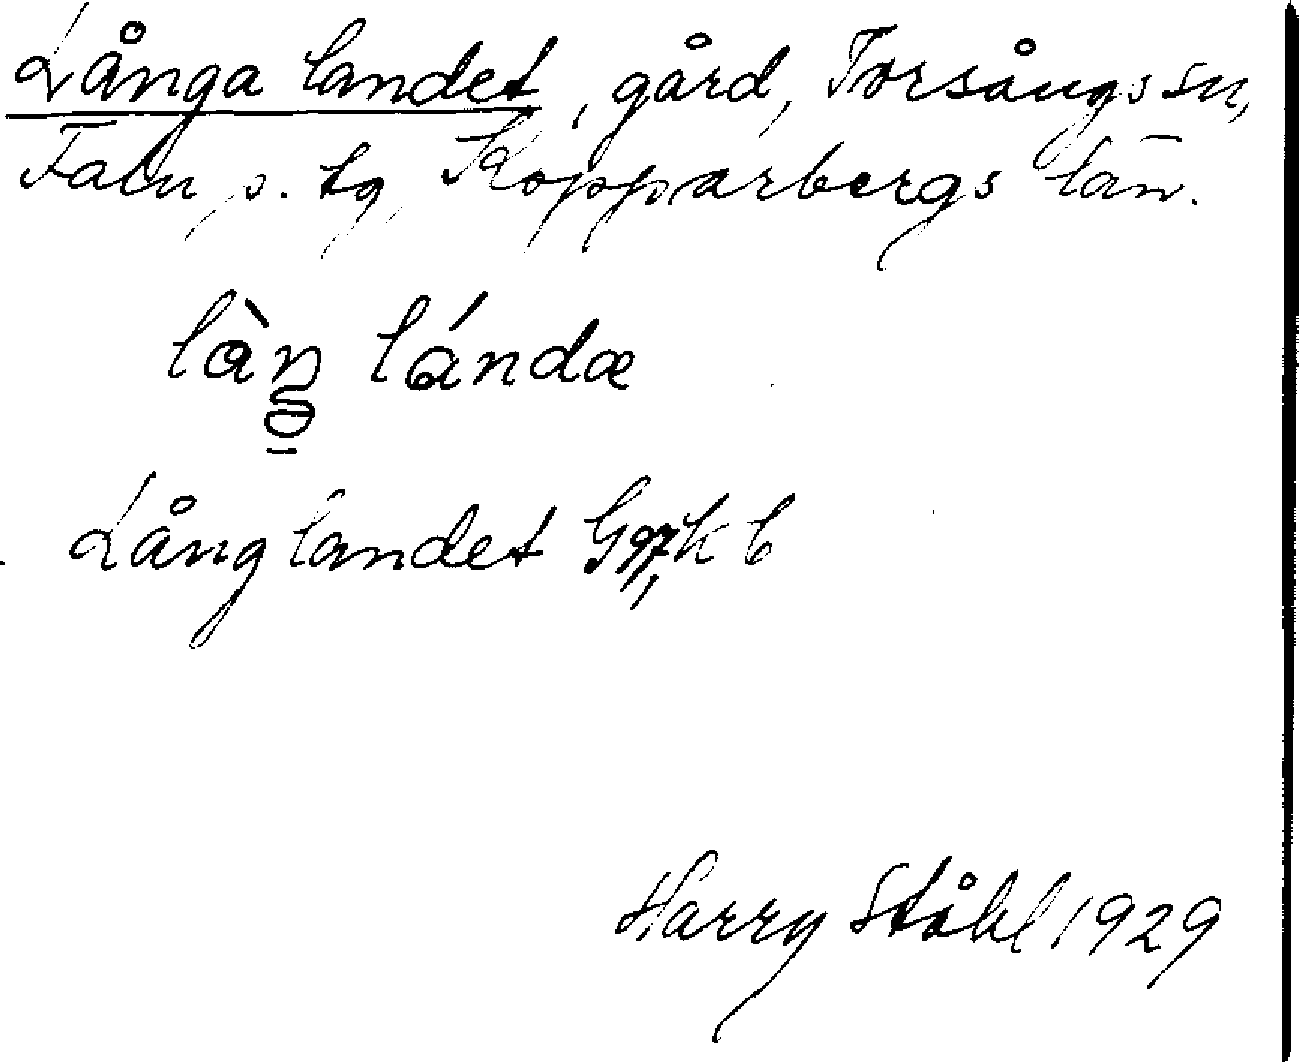 Långa landet, gård, Torsångs sn,
Falu s. tg, Kopparbergs län.
làŋ lándæ
Långlandet G97, k b
Harry Ståhl 1929